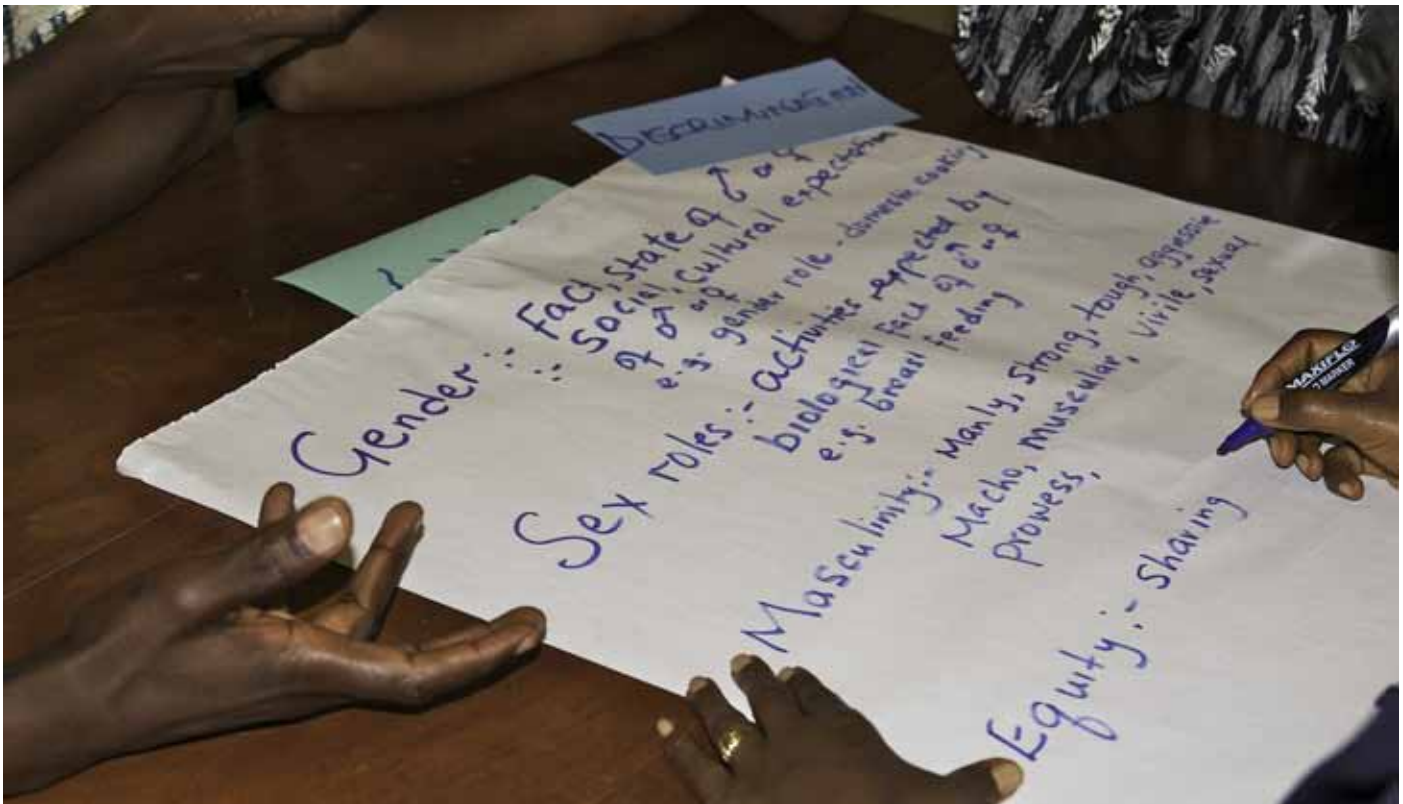 DISCRIMINATION
Gender :- Fact, State of ♂ or ♀
:- Social, Cultural expectation
of ♂ or ♀
e.g. gender role - domestic cooking
Sex roles :- activities expected by
biological fact of ♂ or ♀
e.g. breast feeding
Masculinity :- Manly, Strong, tough, aggressive
Macho, muscular, Virile, Sexual
prowess,
Equity :- Sharing
MAXIFLO
MARKER